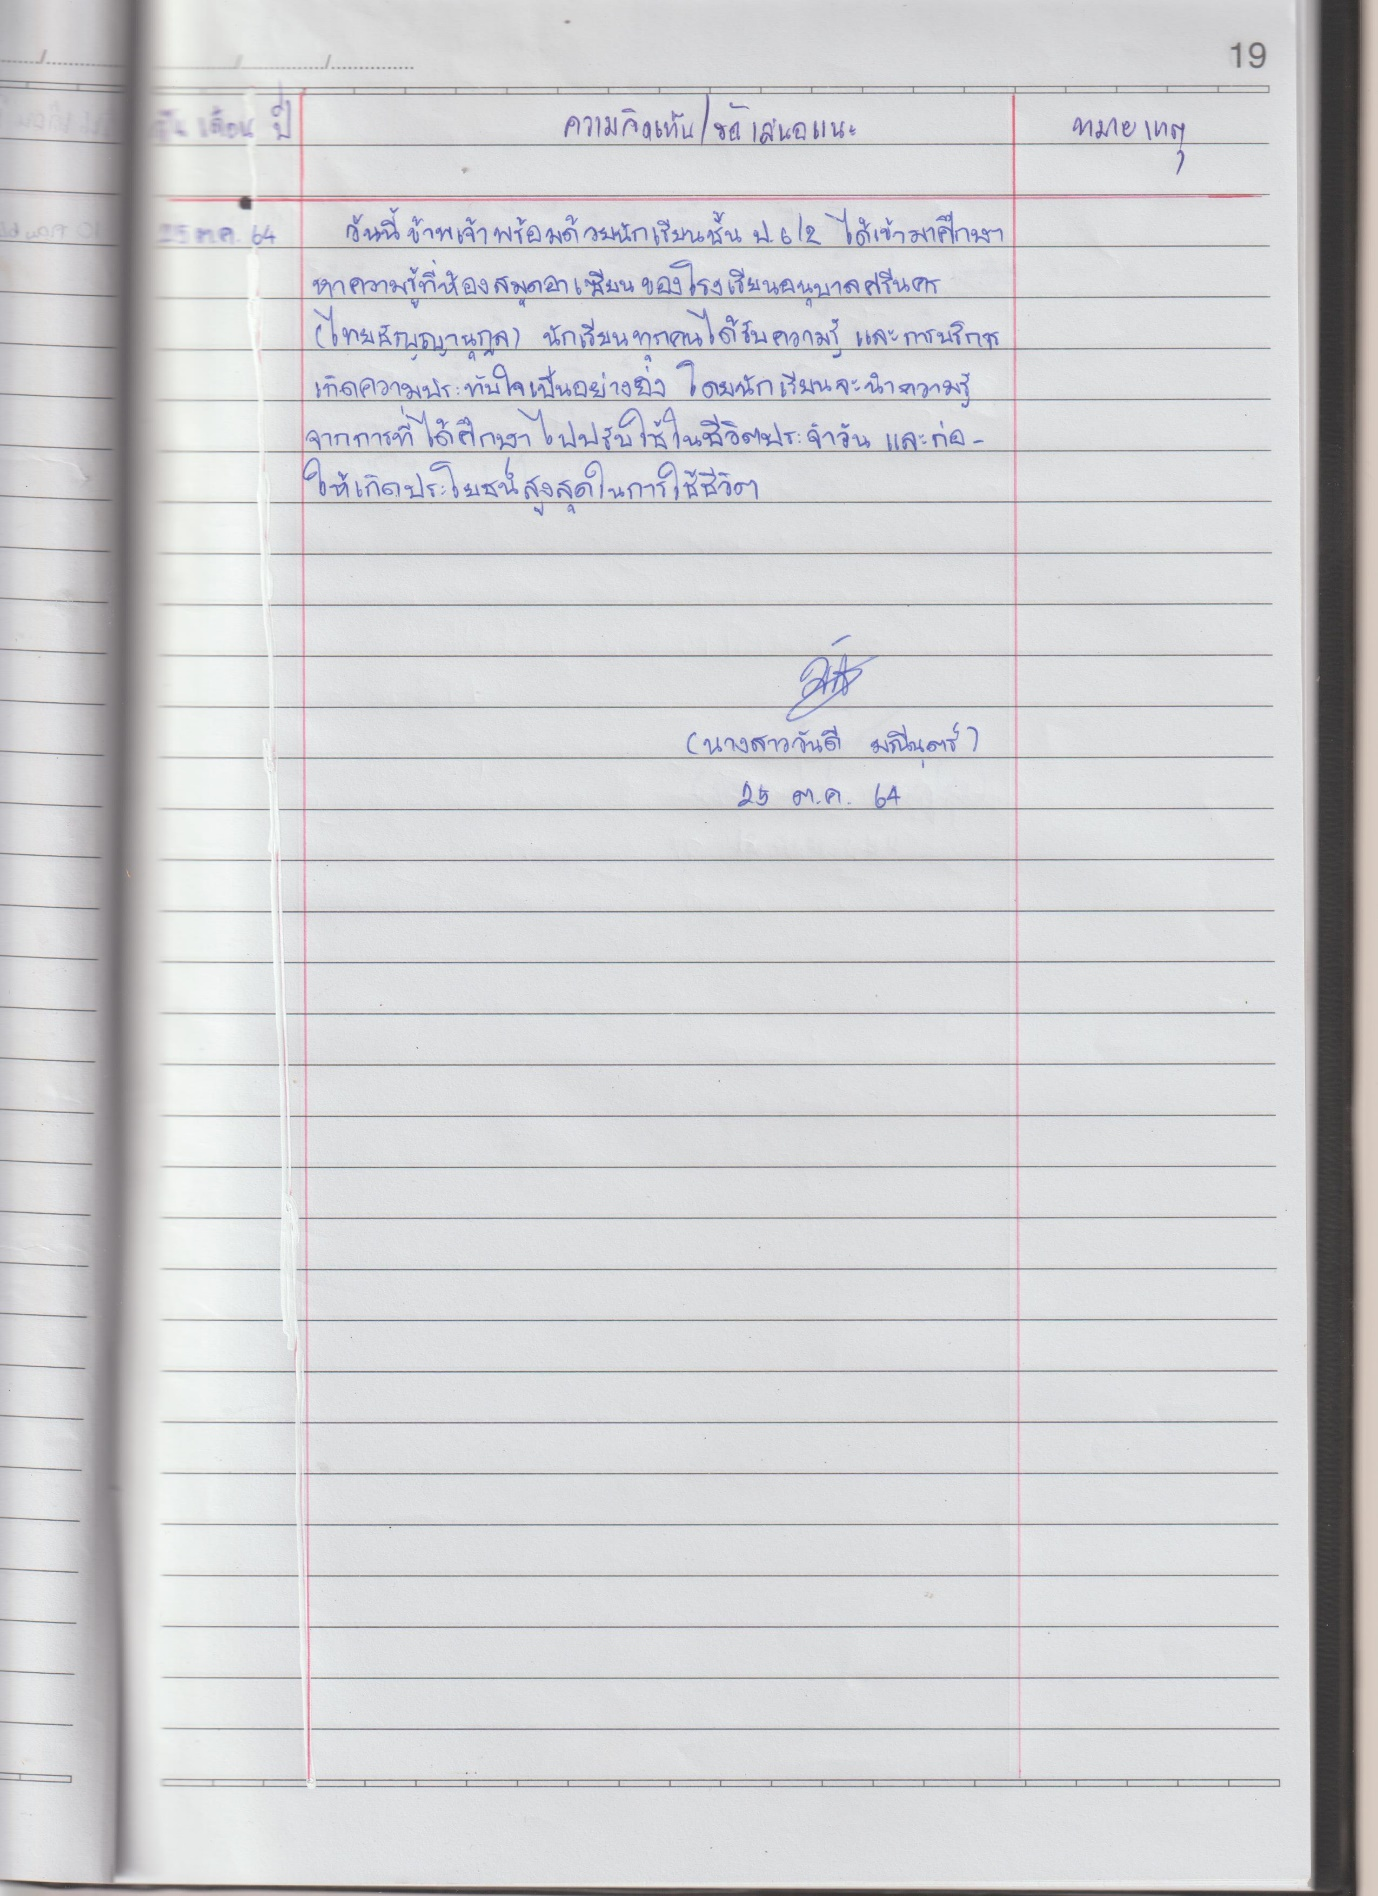 19
วัน เดือน ปี ความคิดเห็น/ข้อเสนอแนะ หมายเหตุ
25 ต.ค. 64 วันนี้ ข้าพเจ้าพร้อมด้วยนักเรียนชั้น ป.6/2 ได้เข้ามาศึกษา
หาความรู้ที่ห้องสมุดอาเซียนของโรงเรียนอนุบาลศรีนคร
(ไทยรัฐญานุกูล) นักเรียนทุกคนได้รับความรู้ และการบริการ
เกิดความประทับใจเป็นอย่างยิ่ง โดยนักเรียนจะนำความรู้
จากการที่ได้ศึกษาไปปรับใช้ในชีวิตประจำวัน และก่อ-
ให้เกิดประโยชน์สูงสุดในการใช้ชีวิต
(นางสาววันดี มณีบุตร์)
25 ต.ค. 64